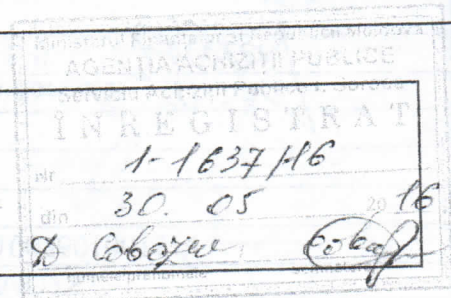 Ministerul Finanțelor al Republicii Moldova
AGENȚIA ACHIZIȚII PUBLICE
Serviciu Achiziții Publice r. Soroca
ÎNREGISTRAT
nr 1-1637/16
din 30. 05 20 16
numele prenumele semnătura